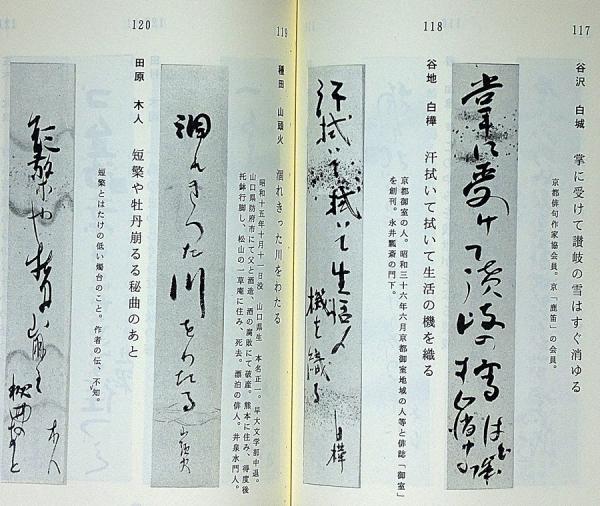 117
谷沢 白城 掌に受けて讃岐の雪はすぐ消ゆる
京都俳句作家協会員。京「鹿笛」の会員。
掌に受けて讃岐の雪はすぐ消ゆる
白城
118
谷地 白樺 汗拭いて拭いて生活の機を織る
京都御室の人。昭和三十六年六月京都御室地域の人等と俳誌「御室」
を創刊。永井瓢斎の門下。
汗拭いて拭いて生活の
機を織る
白樺
119
種田 山頭火 涸れきった川をわたる
昭和十五年十月十一日没 山口県生 本名正一。早大文学部中退。
山口県防府市にて父と酒造、酒の腐敗にて破産。熊本に住み、得度後
托鉢行脚し、松山の一草庵に住み、死去。漂泊の俳人。井泉水門人。
涸れきつた川をわたる
山頭火
120
田原 木人 短檠や牡丹崩るる秘曲のあと
短檠とはたけの低い燭台のこと。作者の伝、不知。
短檠や牡丹崩るる
秘曲のあと
木人